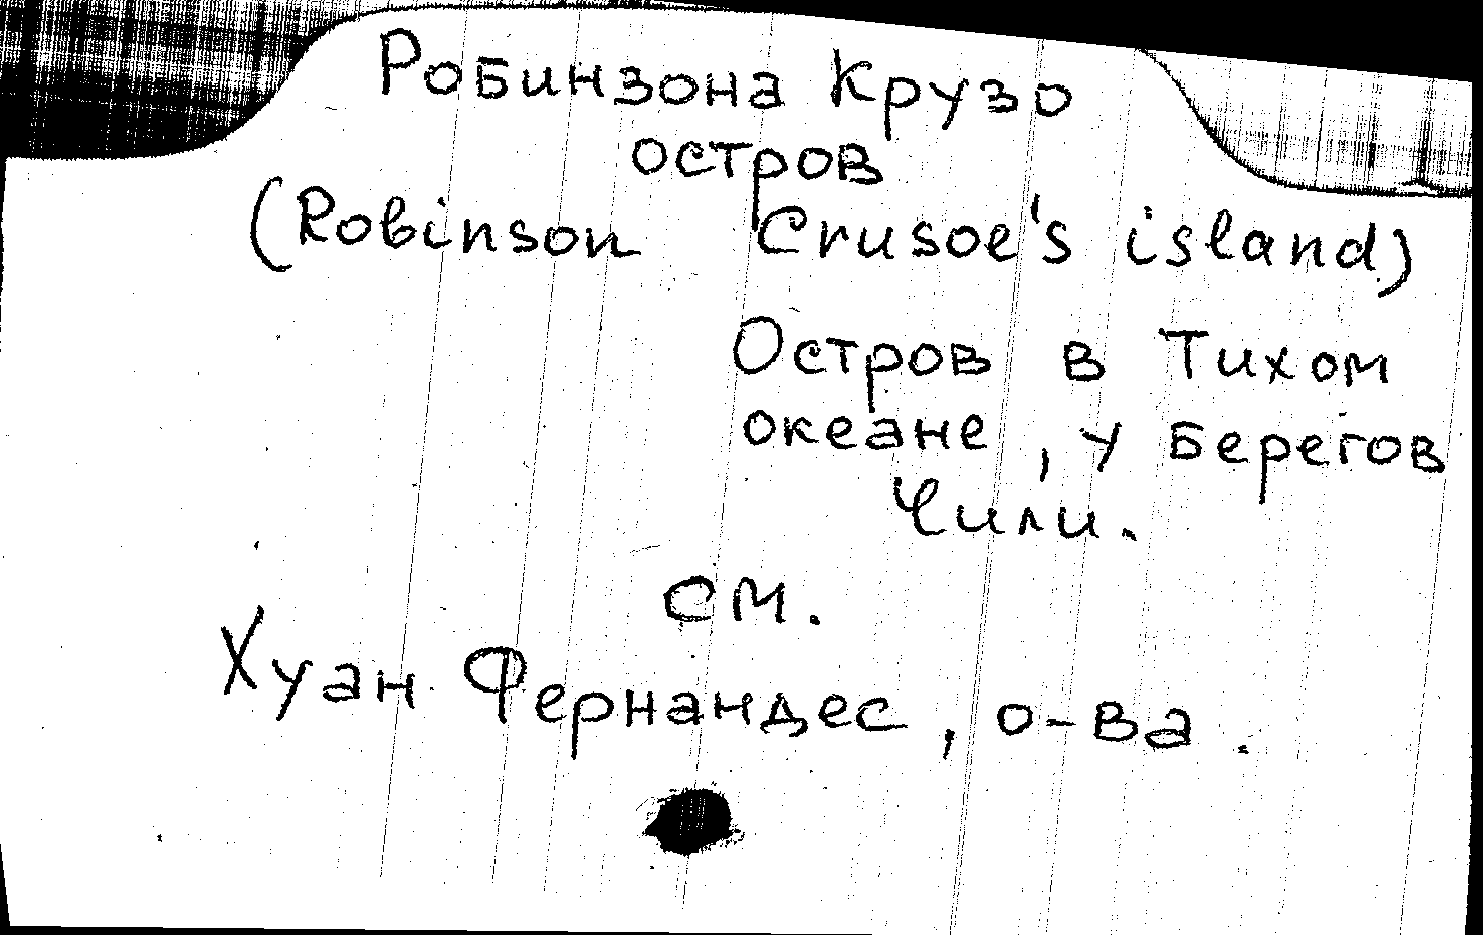 Робинзона Крузо
остров
(Robinson Crusoe's island)
Остров в Тихом
океане, у берегов
Чили.
см.
Хуан Фернандес, о-ва.